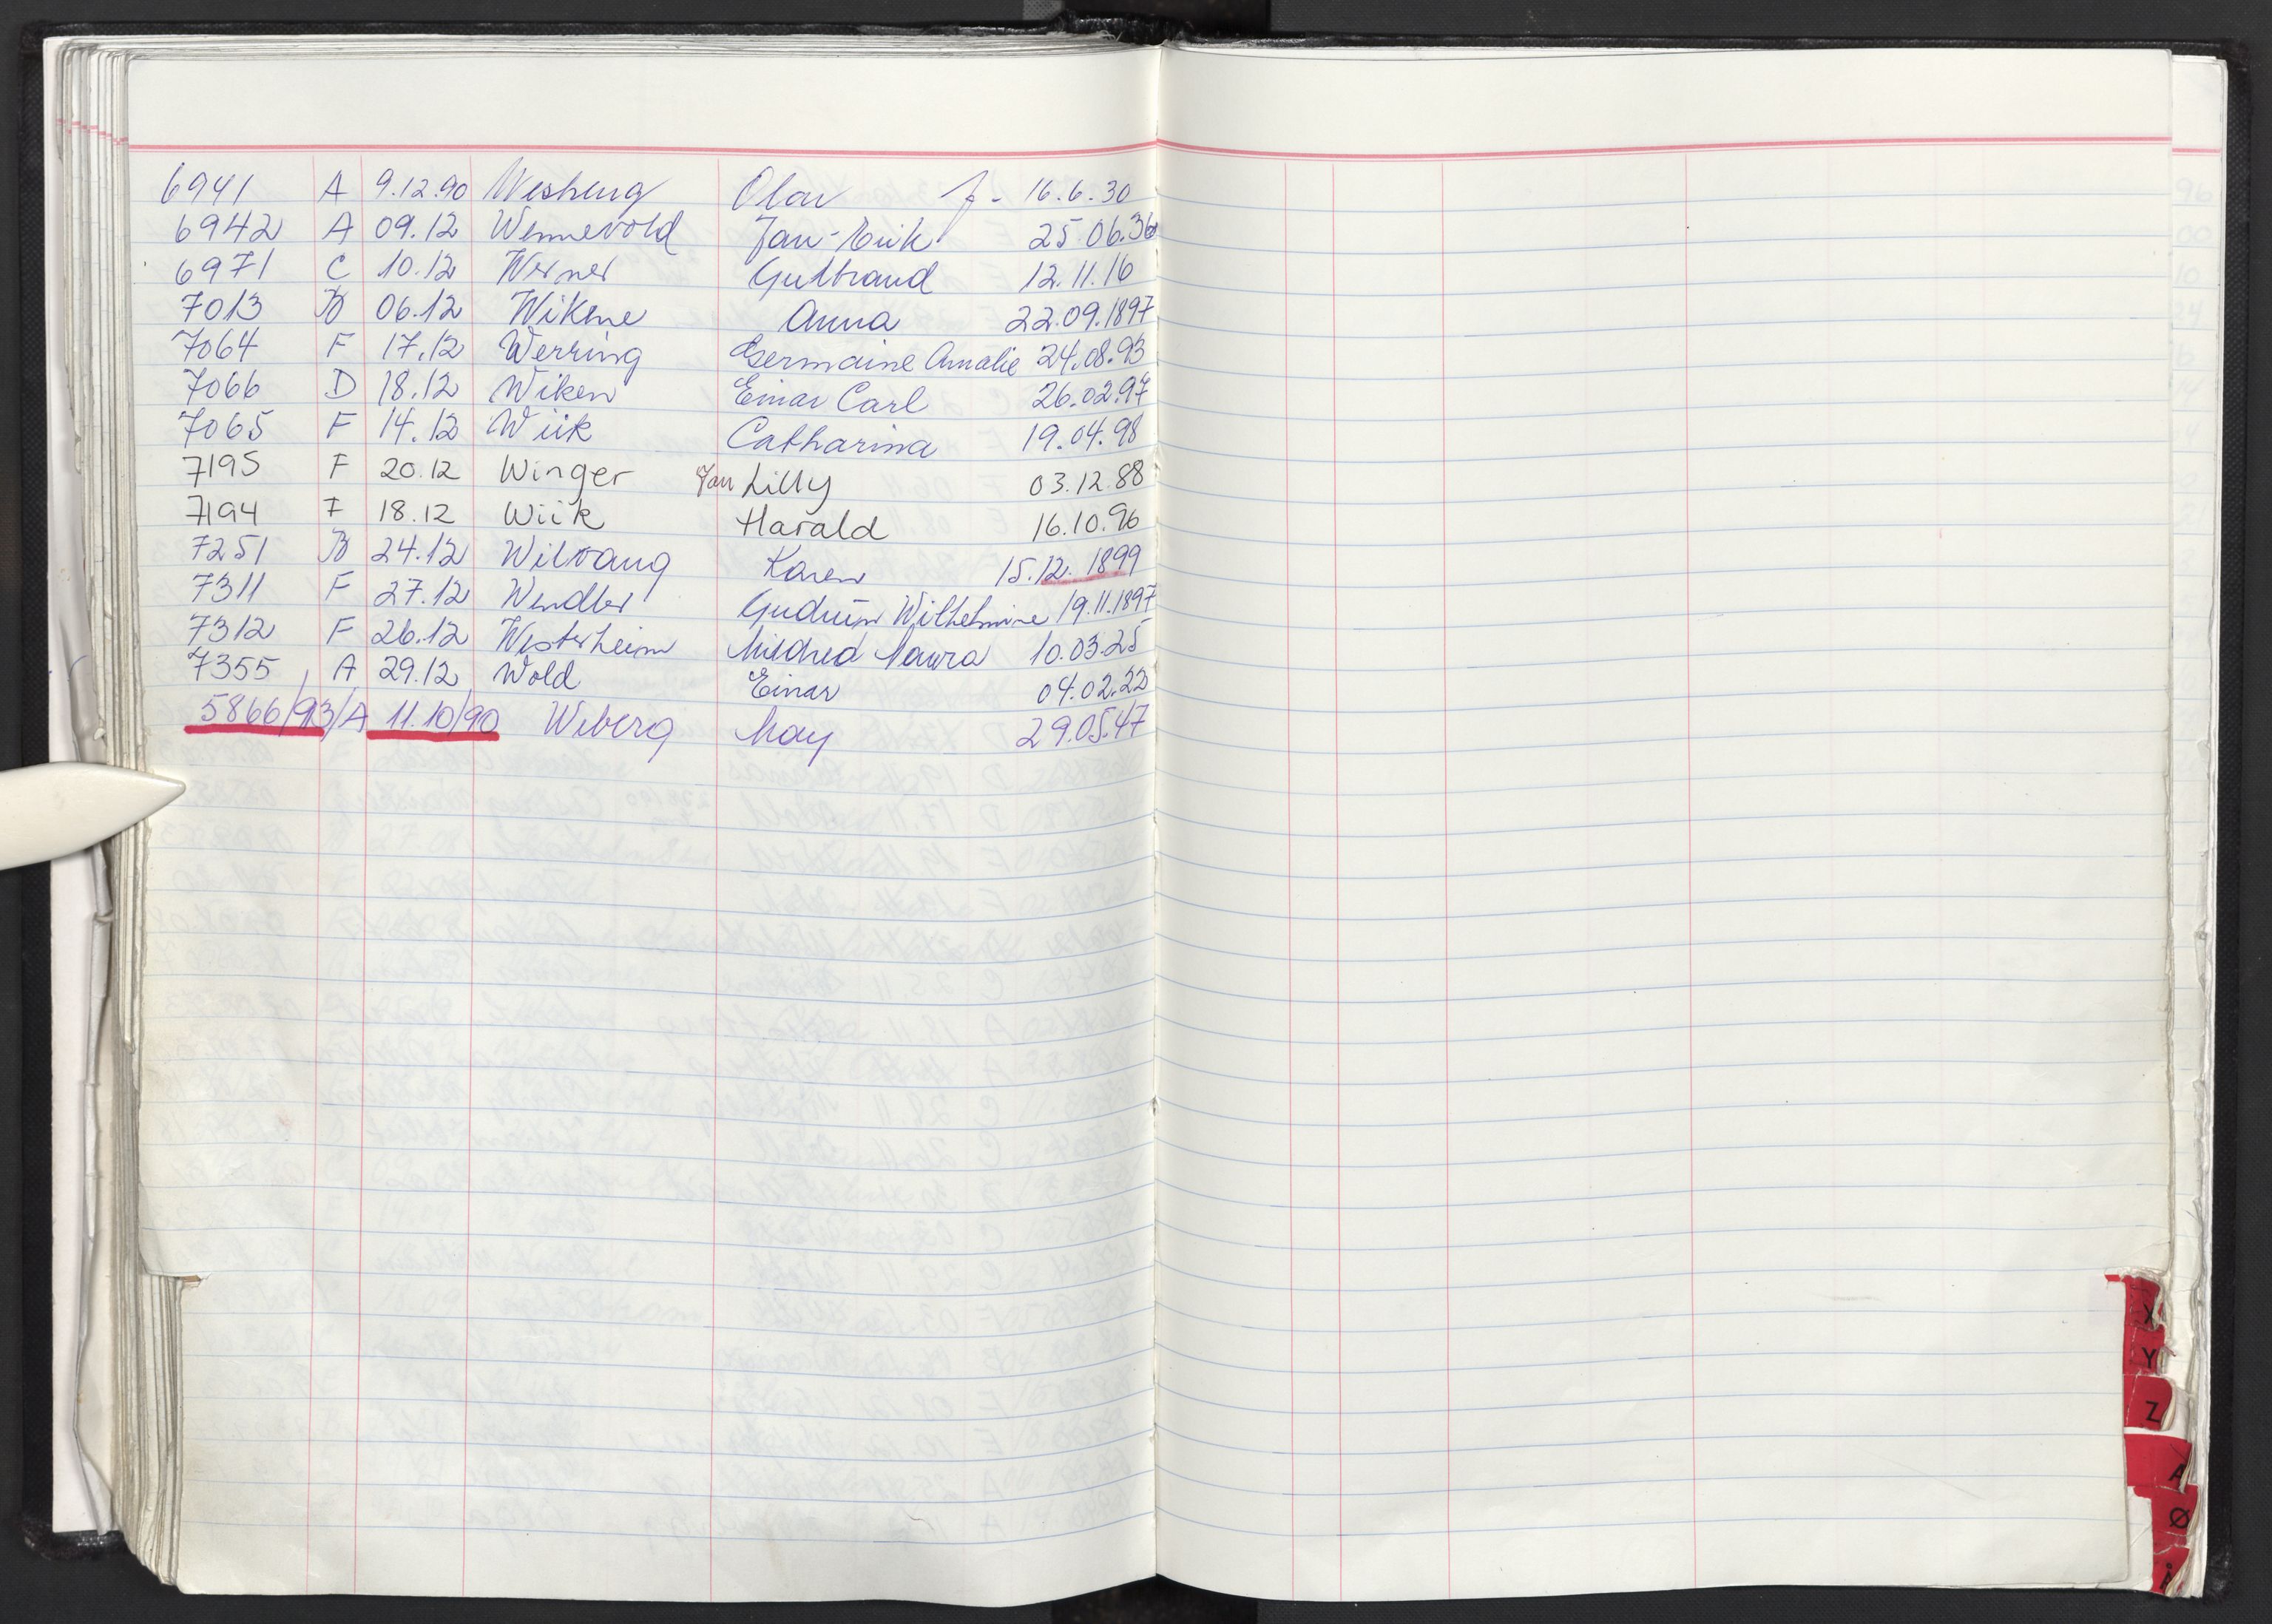 6941 A 9.12.90 Wesberg Olav f. 16.6.30
6942 A 09.12 Wennevold Jan-Erik 25.06.36
6971 C 10.12 Werner Gudbrand 12.11.16
7013 B 06.12 Wikene Anna 22.09.1897
7064 F 17.12 Werring Germaine Amalie 24.08.93
7066 D 18.12 Wiken Einar Carl 26.02.97
7065 F 14.12 Wiik Catharina 19.04.98
7195 F 20.12 Winger Lilly 03.12.88
7194 F 18.12 Wiik Harald 16.10.96
7251 B 24.12 Wilvang Karen 15.12.1899
7311 F 27.12 Wendler Gudrun Wilhelmine 19.11.1897
7312 F 26.12 Westerheim Mildred Naura 10.03.25
7355 A 29.12 Wold Einar 04.02.22
5866/93/A 11.10/90 Wiberg May 29.05.47
X
Y
Z
Ø